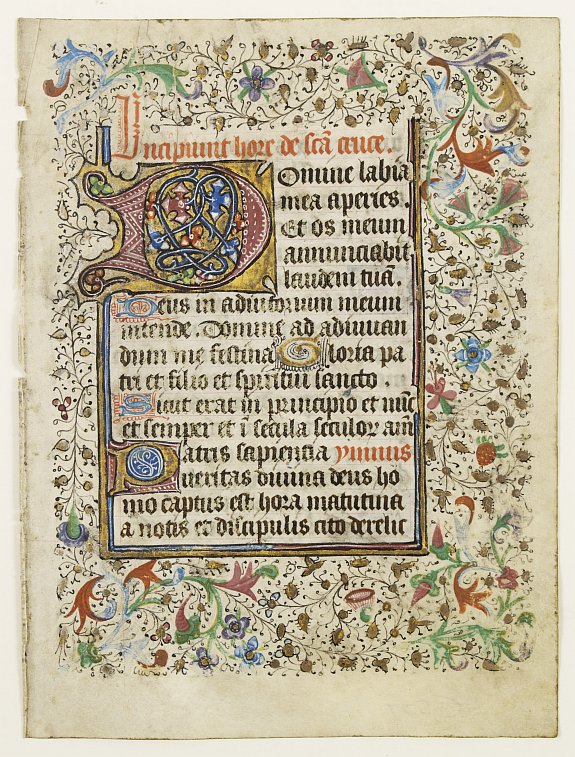 Incipiunt hore de scā cruce.
Domine labia
mea aperies.
Et os meum
annunciabit
laudem tuā.
Deus in adiutorium meum
intende. Domine ad adiuuan
dum me festina Gloria pa
tri et filio et spiritui sancto.
Sicut erat in principio et nūc
et semper et ī secula seculor am̄
Patris sapientia ymnus
ueritas diuina deus ho
mo captus est hora matutina
a notis et discipulis cito derelic